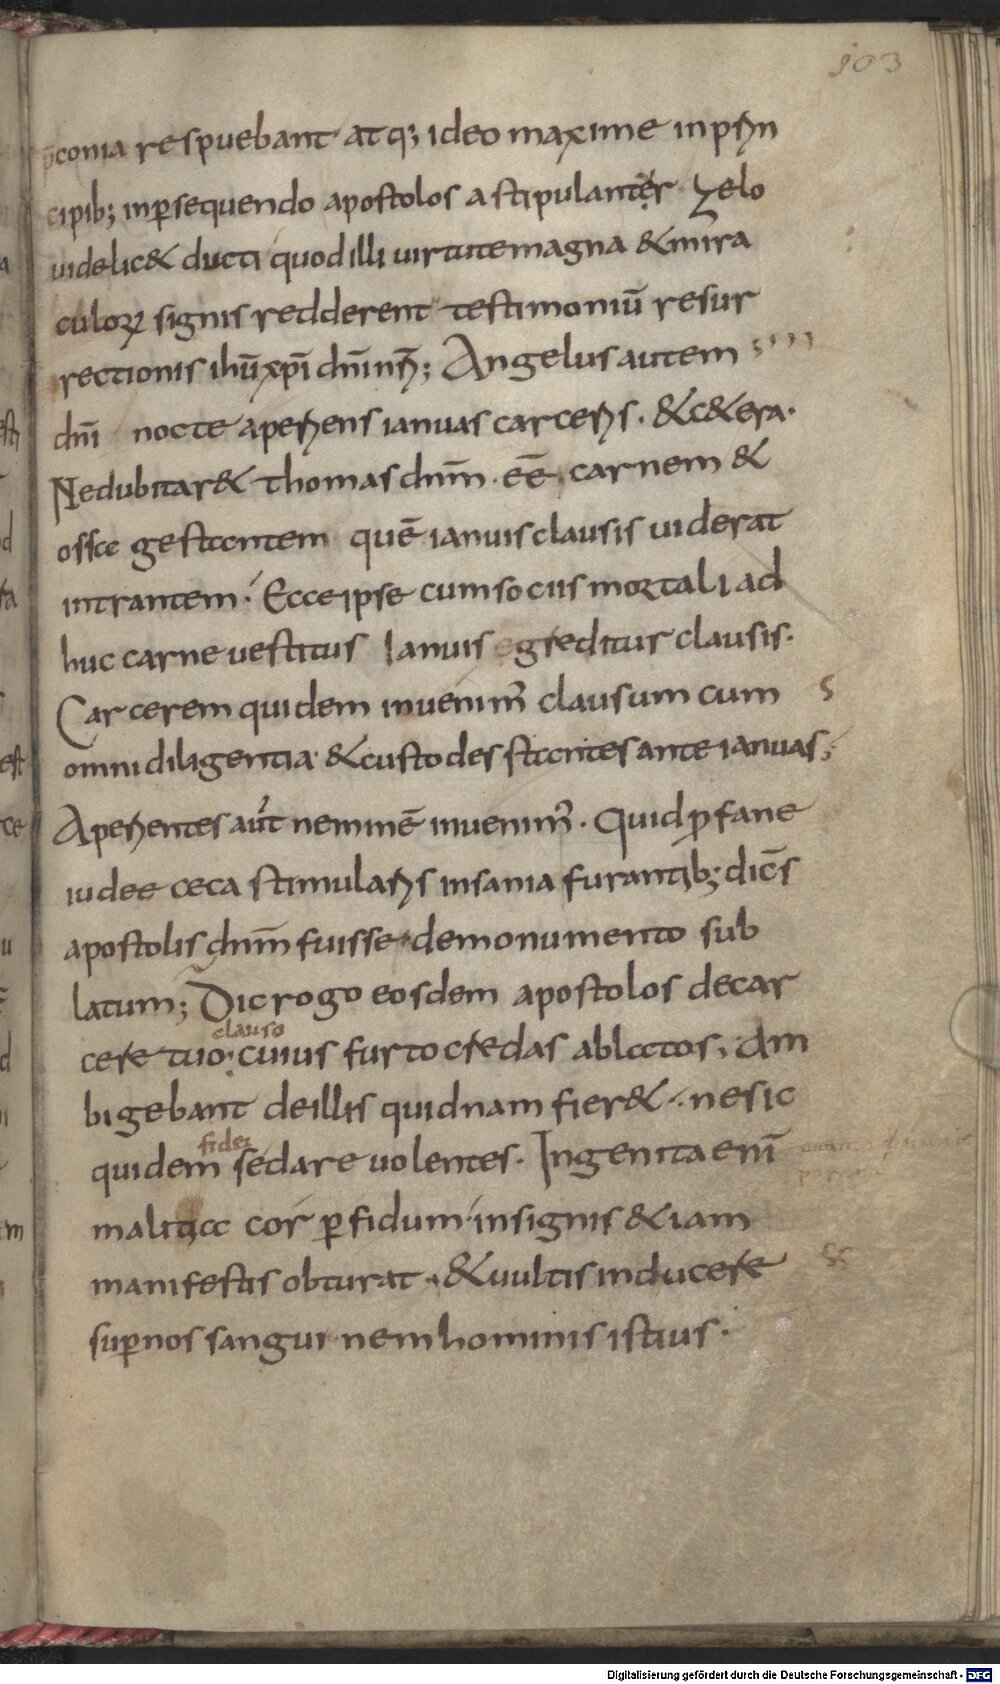 103
p̄conia respuebant atq; ideo maxime inprin
cipib; inꝑsequendo apostolos astipulanter zelo
uidelic& ducti quod illi uirtute magna & mira
culoꝝ signis redderent testimoniū resur
rectionis ihū xp̄i dn̄i nr̄i; Angelus autem
dn̄i nocte aperiens ianuas carceris. & c&era.
Nedubitar& thomas dnm̄. eē carnem &
ossa gestantem quē ianuis clausis uiderat
intrantem. Ecce ipse cum sociis mortali ad
huc carne uestitus Ianuis egreditur clausis.
Carcerem quidem inuenim' clausum cum
omni diligentia & custodes stantes ante ianuas;
Aperientes aut neminē inuenim'. Quid ꝓfane
iudee ceca stimularis insania furantib; dic̄s
apostolis dnm̄ fuisse demonumento sub
latum; Dic rogo eosdem apostolos decar
clauso
cere tuo cuius furto credas ablatos; Am
bigebant deillis quidnam fier& nesic
fidei
quidem sedare uolentes. Ingenita enī
malitia cor ꝑfidum insignis & iam
manifestis obturat. & uultis inducere
suꝑnos sanguinem hominis istius.
Digitalisierung gefördert durch die Deutsche Forschungsgemeinschaft - DFG